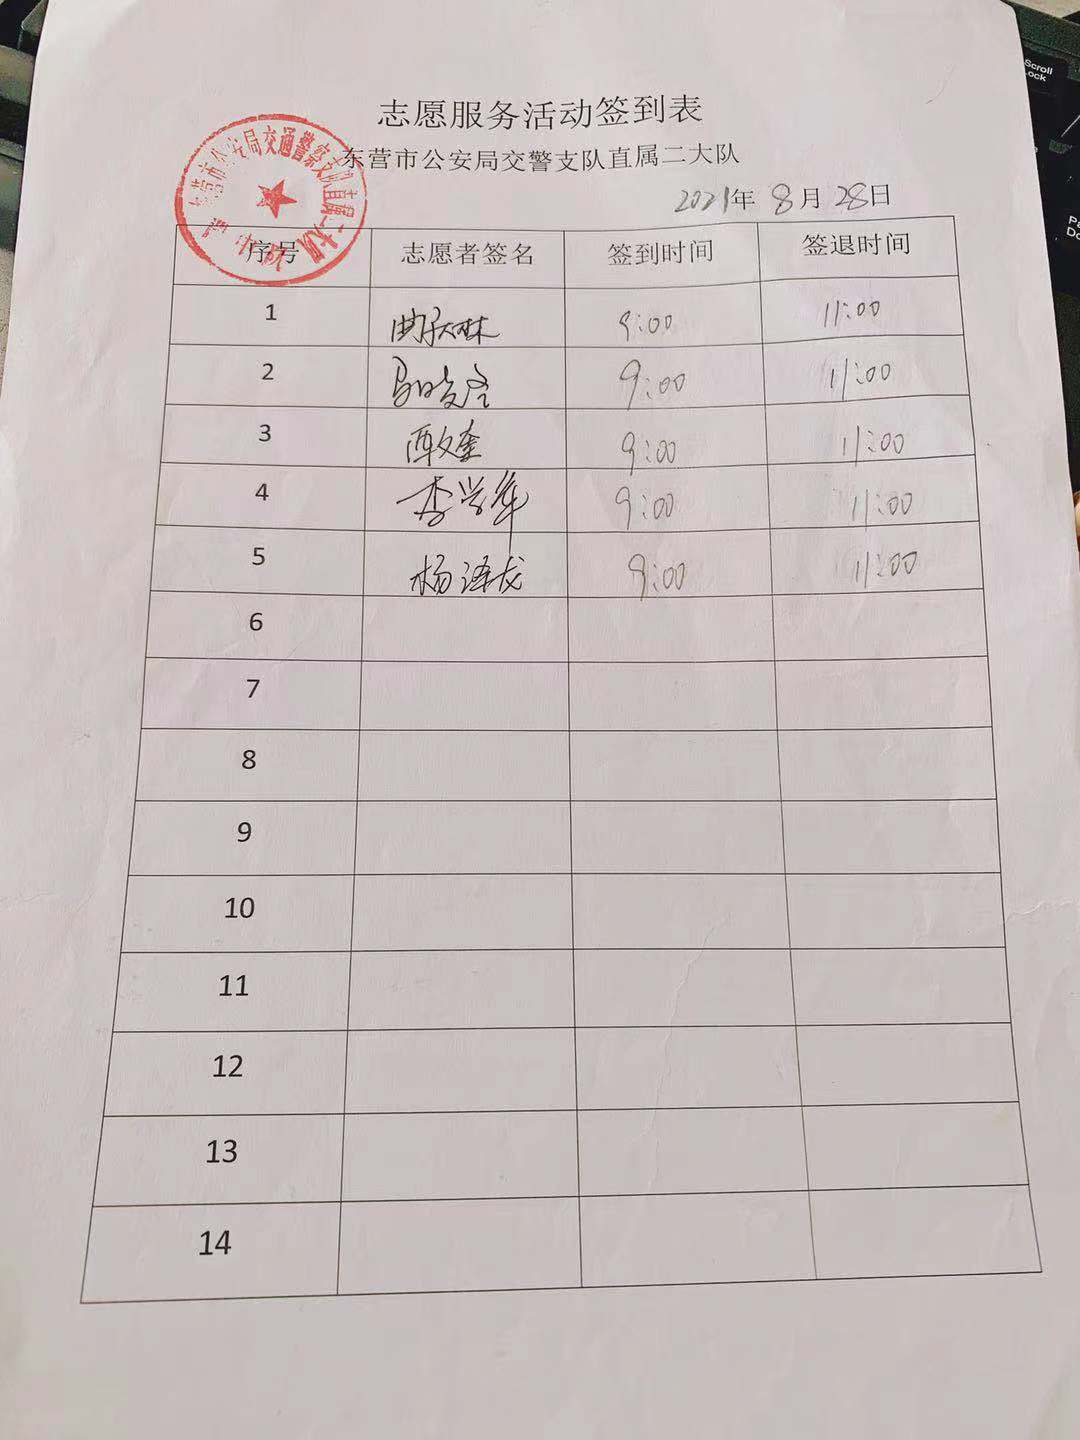 志愿服务活动签到表
东营市公安局交警支队直属二大队
2021年 8月 28日
序号 志愿者签名 签到时间 签退时间
1 9:00 11:00
2 9:00 11:00
3 9:00 11:00
4 李学军 9:00 11:00
5 杨泽龙 9:00 11:00
6
7
8
9
10
11
12
13
14
东营市公安局交通警察支队直属二大队
Scroll
Lock